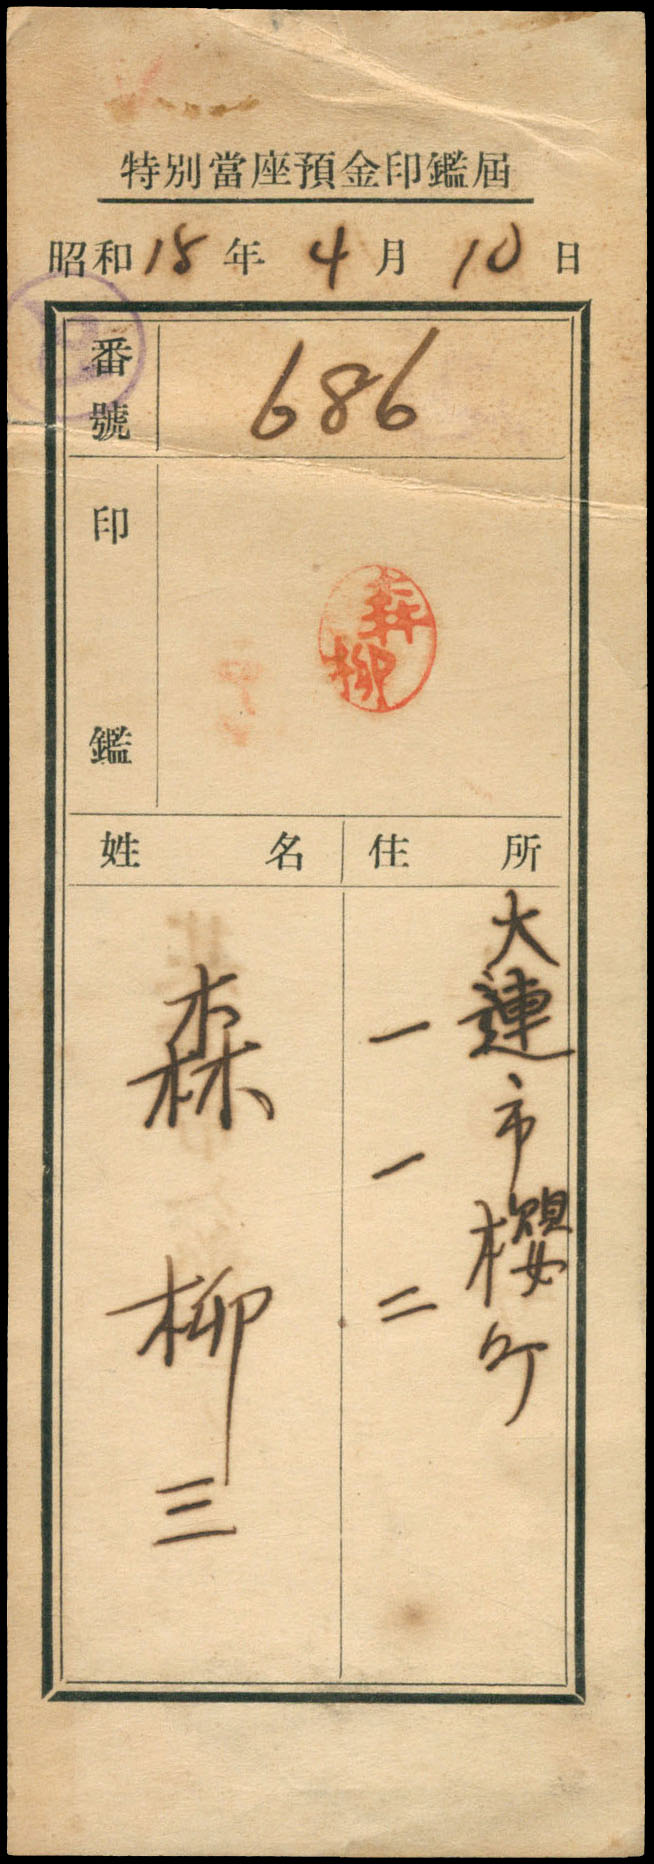 特別當座預金印鑑屆
昭和18年4月10日
番號
686
印鑑
森柳
姓名
住所
大連市櫻町
一一二
森柳三